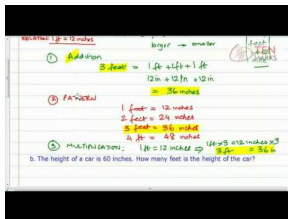 RELATION: 1 ft = 12 inches
larger → smaller
① Addition
3 feet = 1ft + 1ft + 1ft
12in + 12in + 12in
= 36 inches
② PATTERN
1 foot = 12 inches
2 feet = 24 inches
3 feet = 36 inches
4 ft = 48 inches
③ MULTIPLICATION: 1ft = 12 inches ⇒ 1ft × 3 = 12 inches × 3
3ft = 36 in
b. The height of a car is 60 inches. How many feet is the height of the car?